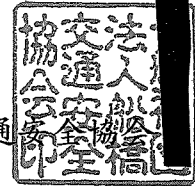 法人船橋
交通安全
協会印
通安全協会